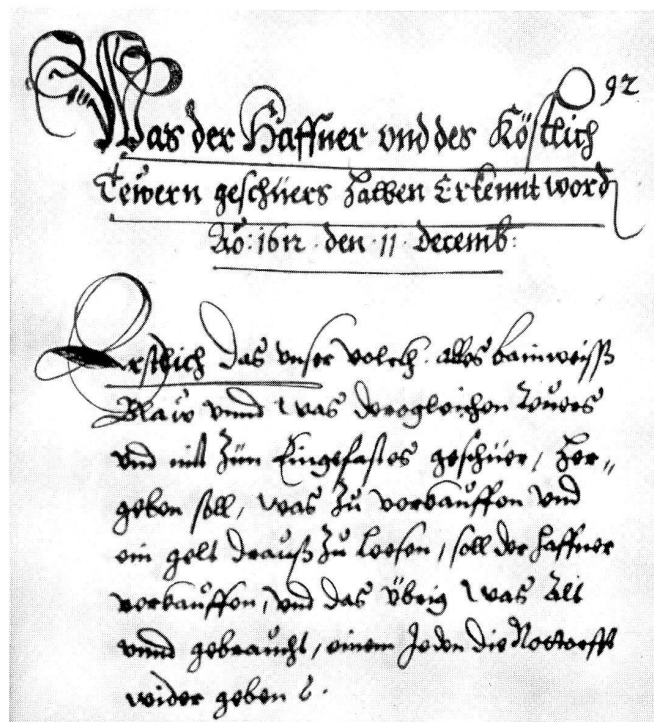 92
Was der Haffner vnd des Köstlich
Tewern geschüers halben Erkennt word
Aõ: 1612 · den · 11 · decemb:
Erstlich das vnser volckh alles bainweiss
Blaw vnnd was dergleichen teures
vnd mit Zün Eingefastes geschüer, Her„
geben soll, was Zu verkauffen vnd
ein gelt drauß Zu loesen, soll der haffner
verkauffen, vnd das übrig was Alt
vnnd gebraucht, einem Jeden die Notturfft
wider geben